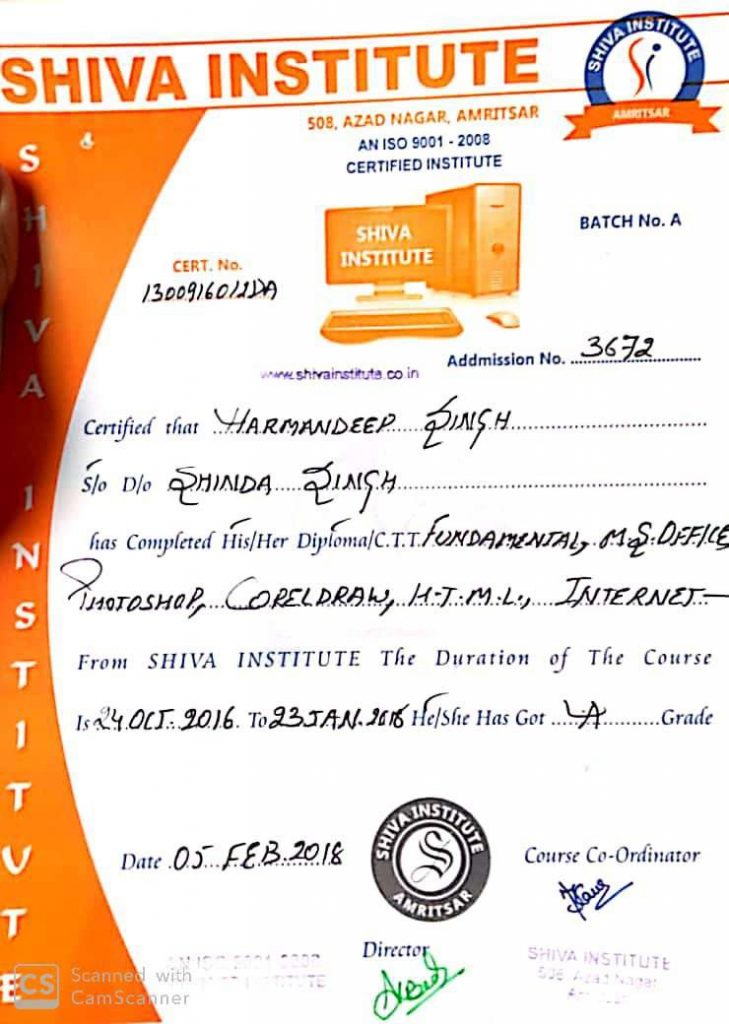 SHIVA INSTITUTE
SHIVA INSTITUTE
AMRITSAR
508, AZAD NAGAR, AMRITSAR
AN ISO 9001 - 2008
CERTIFIED INSTITUTE
&
SHIVA INSTITUTE
SHIVA
INSTITUTE
BATCH No. A
CERT. No.
www.shivainstitute.co.in
Addmission No. 3672
Certified that HARMANDEEP SINGH
S/o D/o SHINDA SINGH
has Completed His/Her Diploma/C.T.T. FUNDAMENTAL, M.S.OFFICE
PHOTOSHOP, CORELDRAW, H.T.M.L., INTERNET
From SHIVA INSTITUTE The Duration of The Course
Is 24 OCT. 2016. To 23 JAN. 2018 He/She Has Got A Grade
SHIVA INSTITUTE
S
AMRITSAR
Date 05 FEB. 2018
Course Co-Ordinator
Director
AN ISO 9001-2008
INSTITUTE
SHIVA INSTITUTE
508, Azad Nagar
CS Scanned with
CamScanner